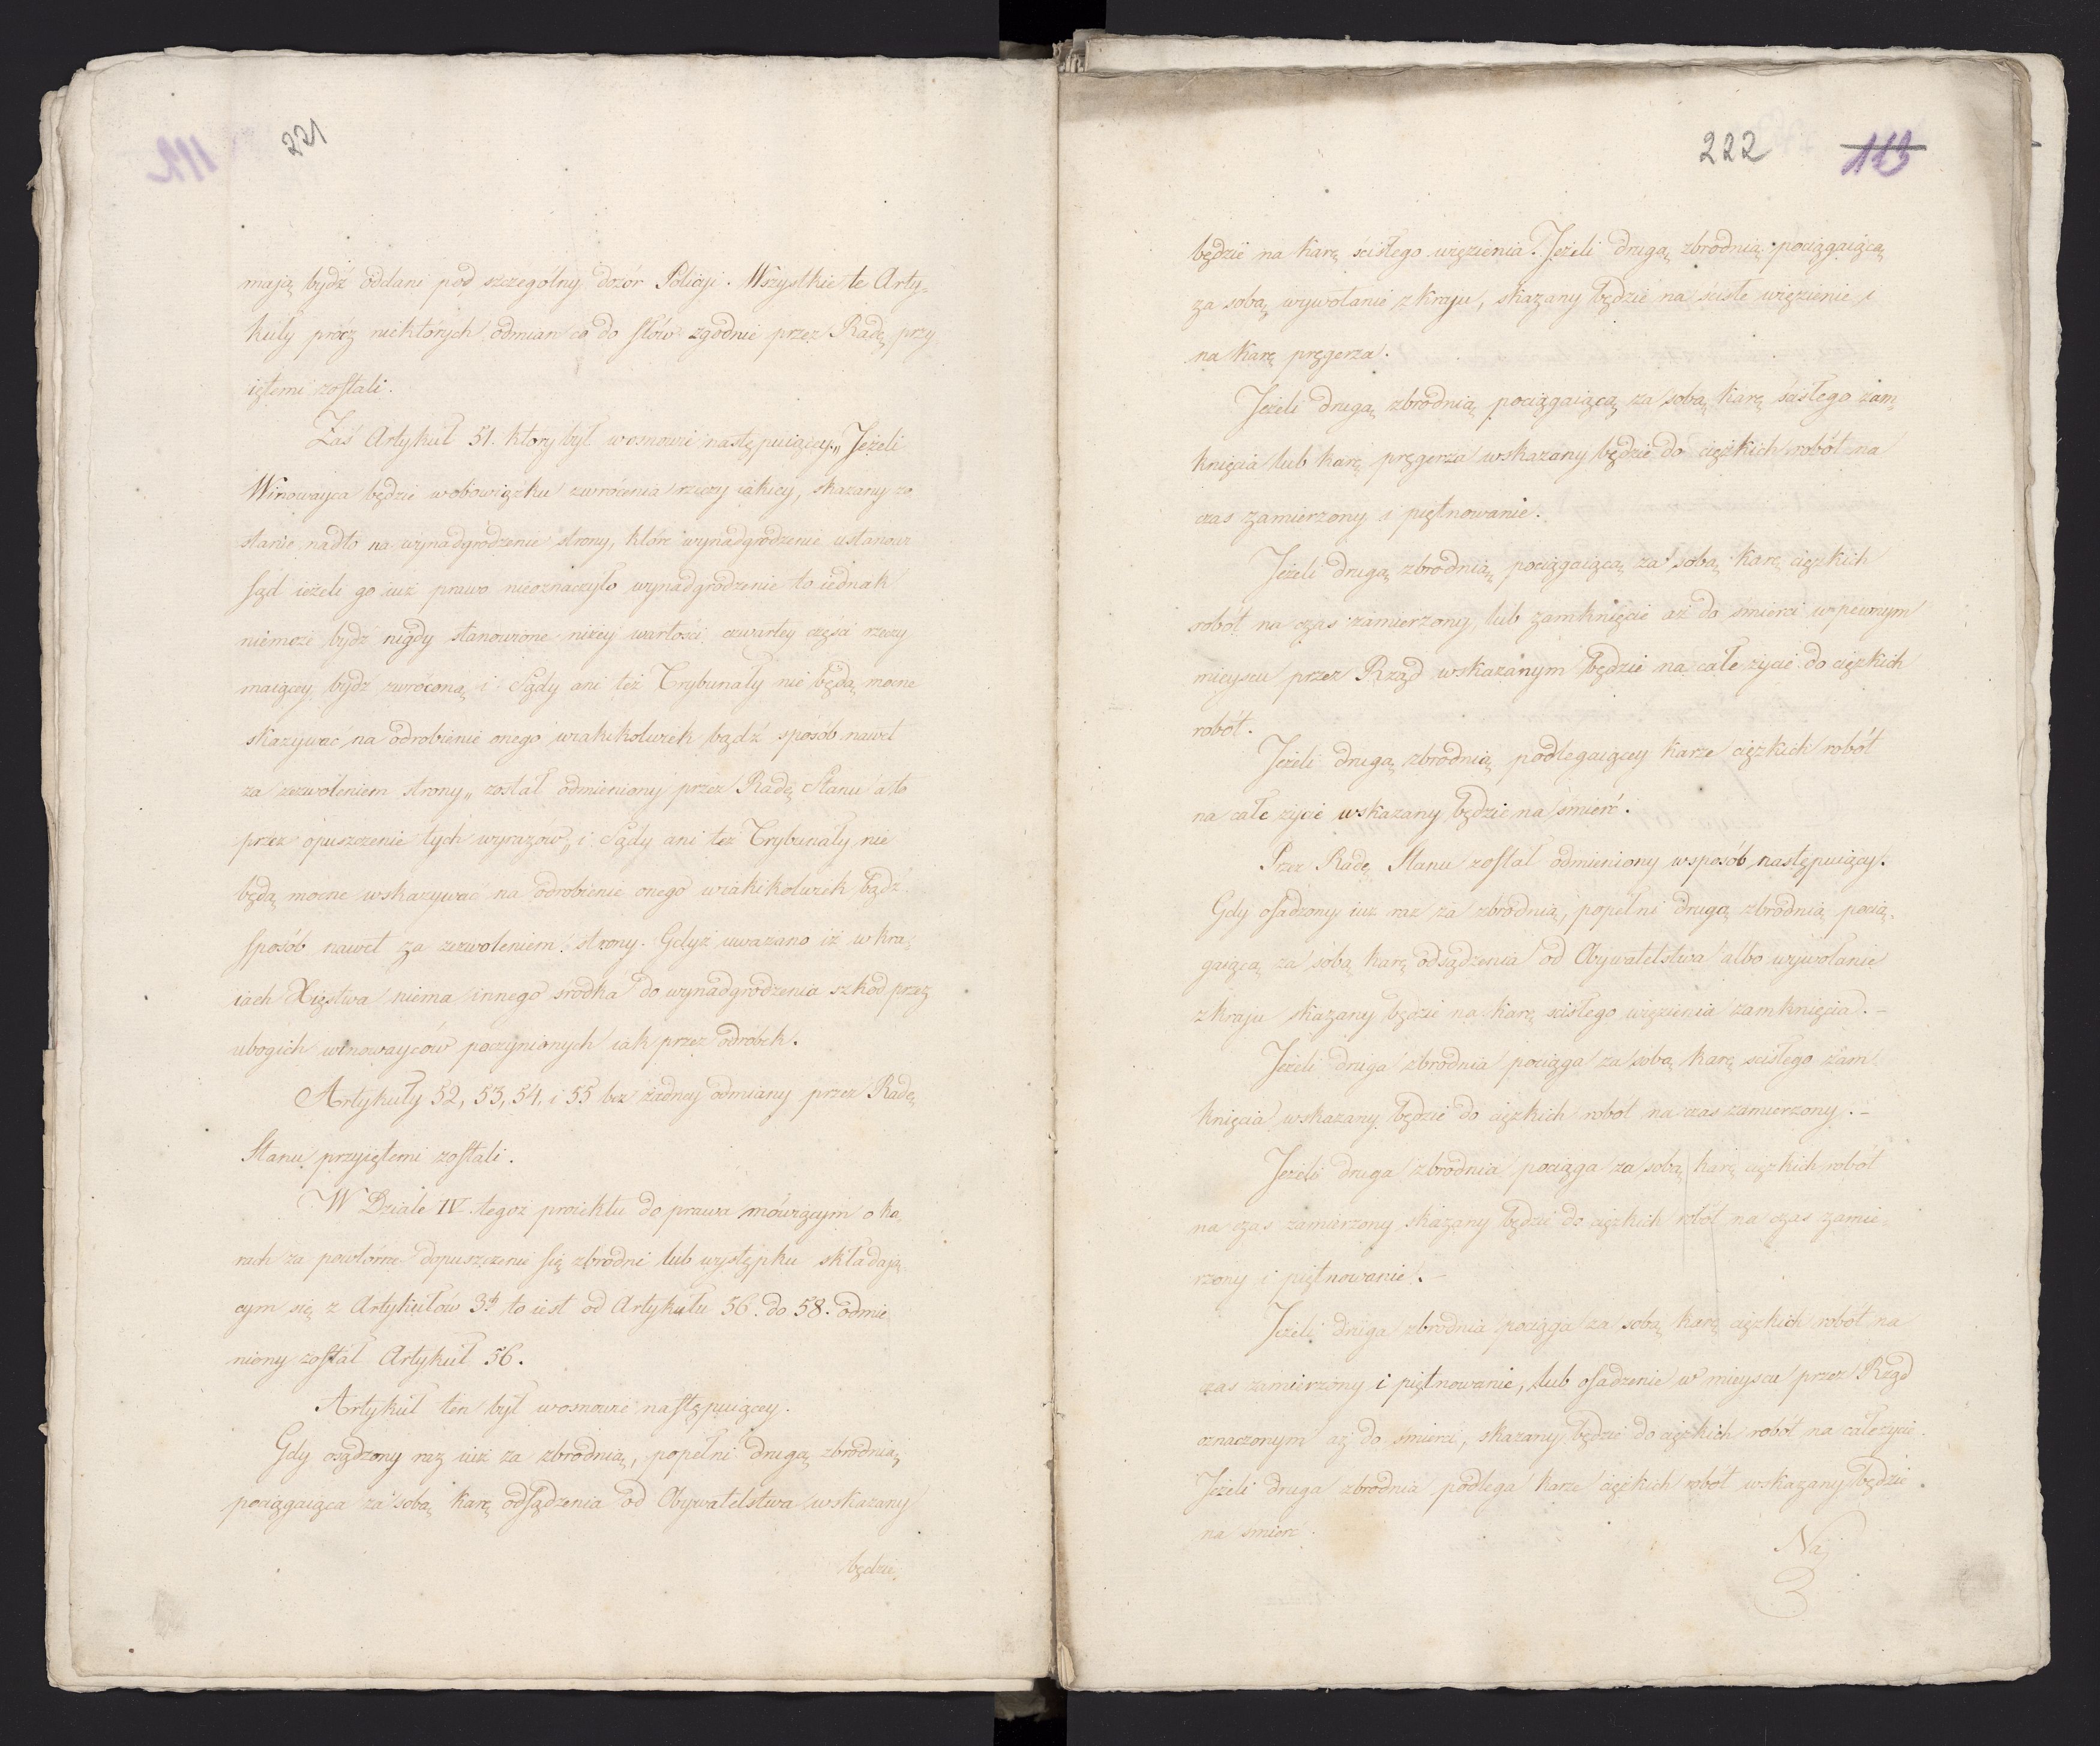 221
mają bydź oddani pod szczególny dozór Policyi. Wszystkie te Arty-
kuły prócz niektórych odmian co do słów zgodnie przez Radę przy
iętemi zostali.
Zaś Artykuł 51. ktory był w osnowie następuiącey „Jeżeli
Winowayca będzie w obowiązku zwrócenia rzeczy iakiey, skazany zo
stanie nadto na wynadgrodzenie strony, które wynadgrodzenie ustanowi
sąd ieżeli go iuż prawo nieoznaczyło wynadgrodzenie to iednak
niemoże bydź nigdy stanowione niżey wartości czwartey części rzeczy
maiącey bydź zwróconą i Sądy ani też Trybunały nie będą mocne
skazywać na odrobienie onego wiakikolwiek bądź sposób nawet
za zezwoleniem strony„ został odmieniony przez Radę Stanu a to
przez opuszczenie tych wyrazów„ i Sądy ani też Trybunały nie
będą mocne wskazywać na odrobienie onego wiakikolwiek bądź
sposób nawet za zezwoleniem strony. Gdyż uważano iż w kra
iach Xięstwa niema innego srodka do wynadgrodzenia szkod przez
ubogich winowayców poczynionych iak przez odróbek.
Artykuły 52, 53, 54, i 55 bez żadney odmiany przez Radę
Stanu przyiętemi zostali.
W Dziale IV tegoż proiektu do prawa mówiącym o ka
rach za powtórne dopuszczenie się zbrodni lub występku składają
cym się z Artykułów 3ch to iest od Artykułu 56. do 58. odmie
niony został Artykuł 56.
Artykuł ten był wosnowie następuiącey.
Gdy osądzony raz iuż za zbrodnią, popełni drugą zbrodnią
pociągaiąca za sobą karę odsądzenia od Obywatelstwa wskazany
będzie
222 113
będzie na karę scisłego więzienia. Jeżeli drugą zbrodnią pociągaiącą
za sobą wywołanie z kraju, skazany będzie na ścisłe więzienie i
na karę pręgerza.
Jeżeli drugą zbrodnią pociągaiącą za sobą karę ścisłego zam
knięcia lub karę pręgerza wskazany będzie do ciężkich robót na
czas zamierzony i piętnowanie.
Jeżeli drugą zbrodnią pociągaiącą za sobą karę ciężkich
robót na czas zamierzony lub zamknięcie aż do śmierci w pewnym
mieyscu przez Rząd wskazanym będzie na całe życie do ciężkich
robót.
Jeżeli drugą zbrodnią podlegaiącey karze ciężkich robót
na całe życie wskazany będzie na śmierć.
Przez Radę Stanu został odmieniony w sposób następuiący.
Gdy osadzony iuż raz za zbrodnią, popełni drugą zbrodnią pocią-
gaiącą za sobą karę odsądzenia od Obywatelstwa albo wywołanie
z kraju skazany będzie na karę scisłego więzienia zamknięcia. –
Jeżeli druga zbrodnia pociąga za sobą karę scisłego zam
knięcia wskazany będzie do ciężkich robot na czas zamierzony. –
Jeżeli druga zbrodnia pociąga za sobą karę ciężkich robot
na czas zamierzony skazany będzie do ciężkich robót na czas zamie
rzony i piętnowanie. –
Jeżeli druga zbrodnia pociąga za sobą karę ciężkich robót na
czas zamierzony i piętnowanie, lub osadzenie w mieyscu przez Rząd
oznaczonym aż do śmierci, skazany będzie do ciężkich robót na całe życie.
Jeżeli druga zbrodnia podlega karze ciężkich robót wskazany będzie
na śmierć.
Na